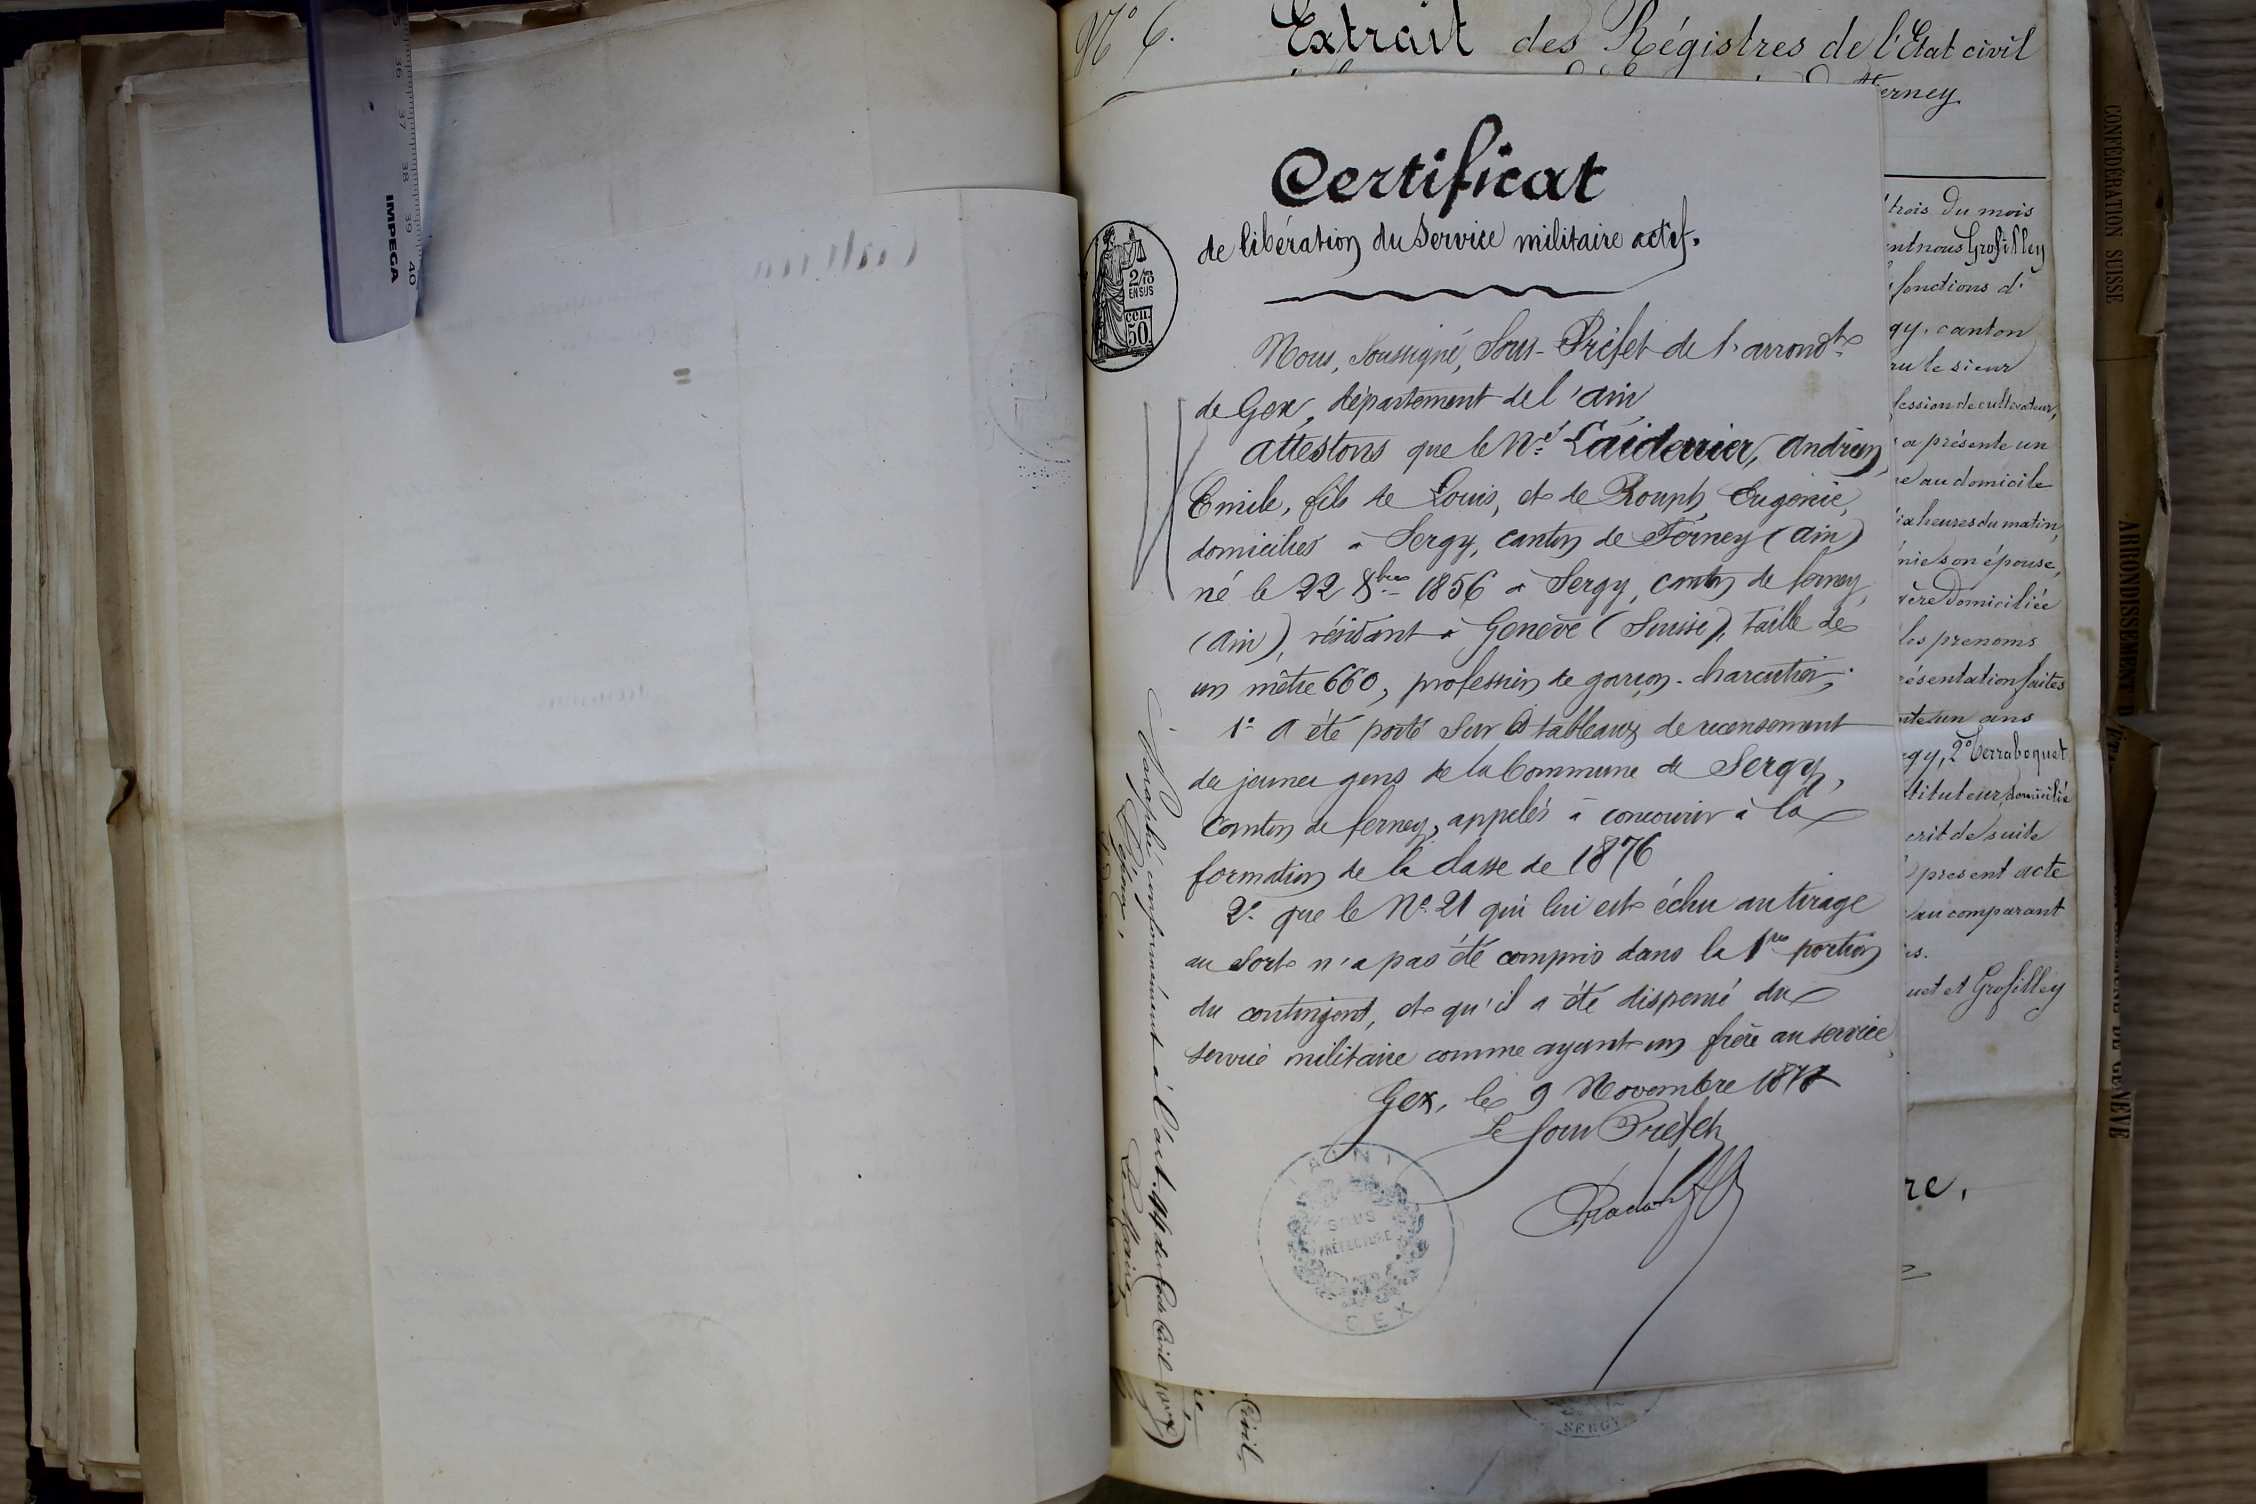 N° 6. Extrait des Régistres de l'Etat civil
Ferney
Certificat
de libération du Service militaire actif.
2/10
EN SUS
CEN.
50
Nous, soussigné, Sous-Préfet de l'arrondt
de Gex, département de l'ain
attestons que le Né Laiderrier, Andrien,
Emile, fils de Louis, et de Rouph, Eugénie,
domiciliés à Sergy, canton de Ferney (ain)
né le 22 8bre 1856 à Sergy, canton de ferney
(ain), résidant à Genève (Suisse), taille de
un mètre 660, profession de garçon-charcutier,
1° a été porté sur les tableaux de recensement
des jeunes gens de la Commune de Sergy,
Canton de ferney, appelés à concourir à la
formation de la classe de 1876
2° que le N° 21 qui lui est échu au tirage
au sort n'a pas été compris dans la 1re portion
du contingent, et qu'il a été dispensé du
service militaire comme ayant un frère au service
Gex, le 9 Novembre 1878
Le sous Préfet
AIN
SOUS
PRÉFECTURE
GEX
Paraphé conformément à l'art. 44 du Code Civil
Le Maire
Civil
SERGY
trois du mois
nous Grosfilley
fonctions d'
gy, canton
le sieur
fession de cultivateur,
a présenté un
au domicile
heures du matin,
son épouse,
Domiciliée
les prenoms
résentation faites
un ans
gy, 2° Terraboquet
stituteur, domicilié
crit de suite
present acte
au comparant
uet et Grosfilley
re,
CONFÉDÉRATION SUISSE
ARRONDISSEMENT D'ÉTAT
DE GENÈVE
36 37 38 39 40
IMPEGA